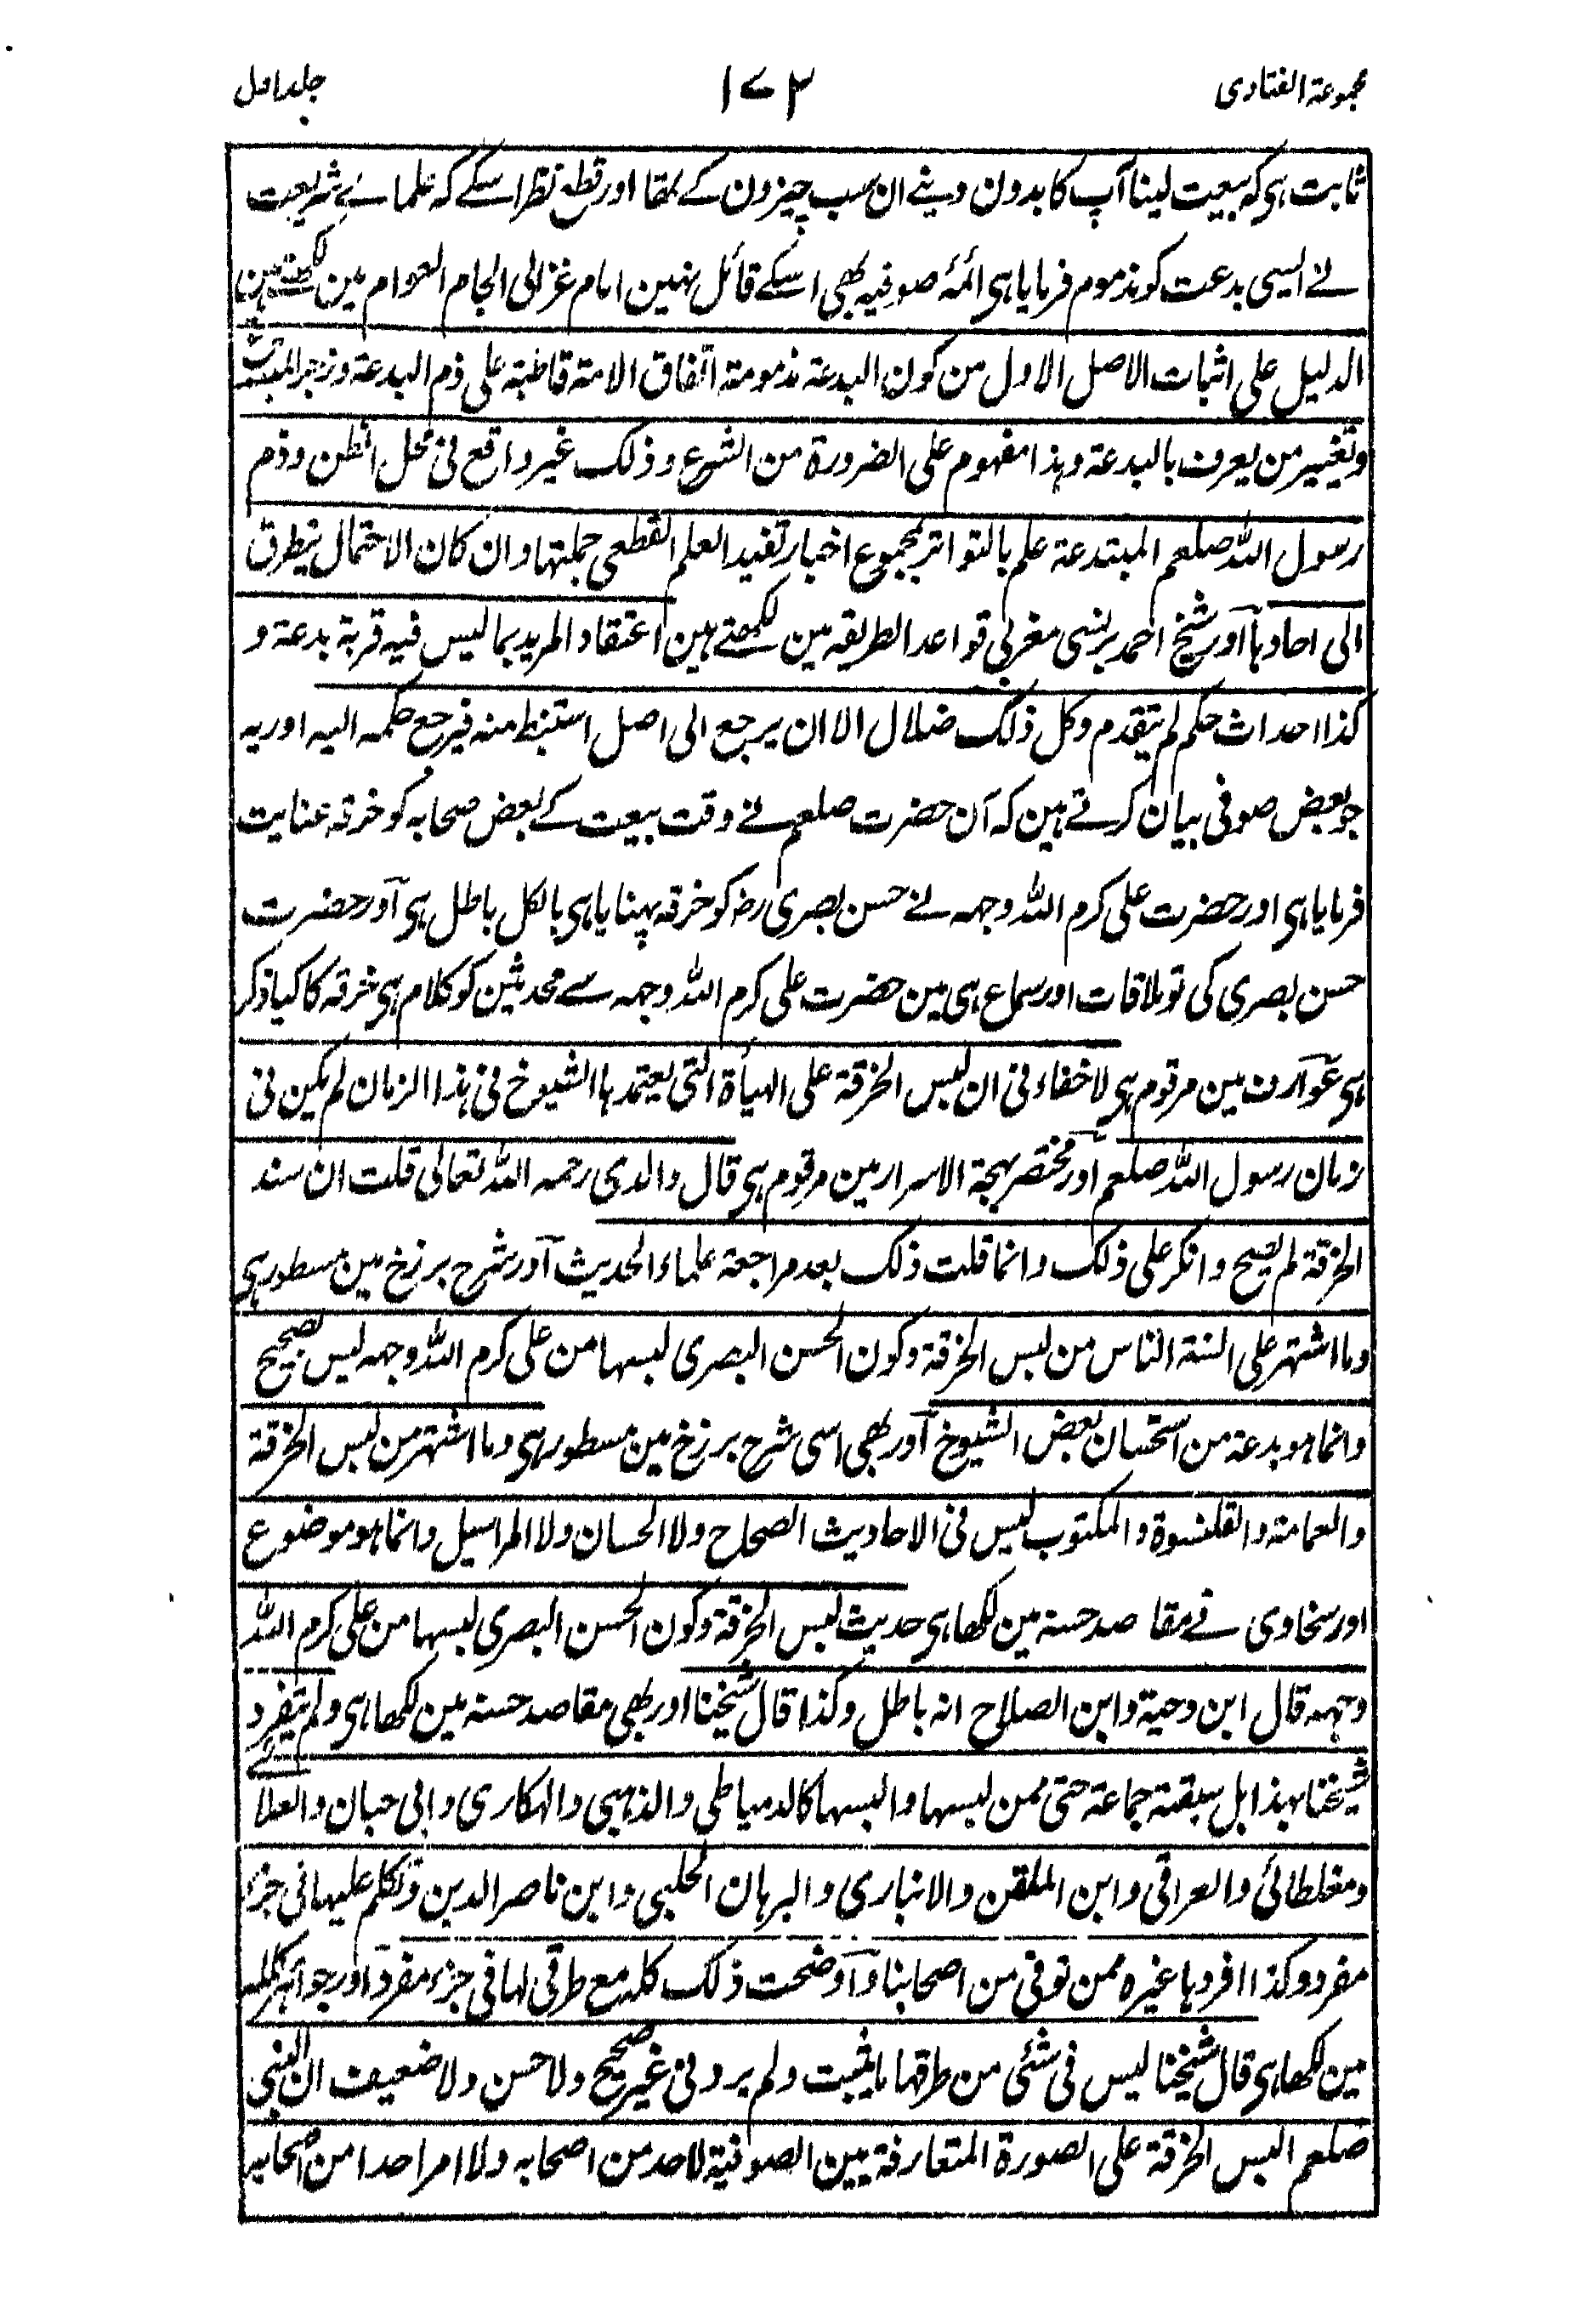 مجموعۃ الفتاوی
۱۷۲
جلد اول
ثابت ہی کہ بیعت لینا آپ کا بدون دینے ان سب چیزون کے تھا اور قطع نظر اسکے کہ علمائے شریعت
نے ایسی بدعت کو مذموم فرمایا ہی ائمۂ صوفیہ بھی اسکے قائل نہین امام غزالی الجام العوام مین لکھتے ہین
الدلیل علی اثبات الاصل الاول من کون البدعۃ مذمومۃ اتفاق الامۃ قاطبۃ علی ذم البدعۃ وزجر المبتدع
وتغییر من یعرف بالبدعۃ وہذا مفہوم علی الضرورۃ من الشرع وذلک غیر واقع فی محل الظن وذم
رسول اللہ صلعم المبتدعۃ علم بالتواتر بمجموع اخبار تفید العلم القطعی جملتہا وان کان الاحتمال یتطرق
الی احادہا اور شیخ احمد برنسی مغربی قواعد الطریقہ مین لکھتے ہین اعتقاد المرید بما لیس فیہ قربۃ بدعۃ و
کذا احداث حکم لم یتقدم وکل ذلک ضلال الا ان یرجع الی اصل استنبط منہ فیرجع حکمہ الیہ اور یہ
جو بعض صوفی بیان کرتے ہین کہ آن حضرت صلعم نے وقت بیعت کے بعض صحابہ کو خرقہ عنایت
فرمایا ہی اور حضرت علی کرم اللہ وجہہ نے حسن بصری رضہ کو خرقہ پہنایا ہی بالکل باطل ہی اور حضرت
حسن بصری کی تو ملاقات اور سماع ہی مین حضرت علی کرم اللہ وجہہ سے محدثین کو کلام ہی خرقہ کا کیا ذکر
ہی عوارف مین مرقوم ہی لا خفاء فی ان لبس الخرقۃ علی الہیأۃ التی یعتمدہا الشیوخ فی ہذا الزمان لم یکن فی
زمان رسول اللہ صلعم اور مختصر بہجۃ الاسرار مین مرقوم ہی قال والدی رحمہ اللہ تعالی قلت ان سند
الخرقۃ لم یصح وانکر علی ذلک وانما قلت ذلک بعد مراجعۃ علماء الحدیث اور شرح برزخ مین مسطور ہی
وما اشتہر علی السنۃ الناس من لبس الخرقۃ وکون الحسن البصری لبسہا من علی کرم اللہ وجہہ لیس بصحیح
وانما ہو بدعۃ من استحسان بعض الشیوخ اور بھی اسی شرح برزخ مین مسطور ہی وما اشتہر من لبس الخرقۃ
والعمامۃ والقلنسوۃ والمکتوب لیس فی الاحادیث الصحاح ولا الحسان ولا المراسیل وانما ہو موضوع
اور سخاوی نے مقاصد حسنہ مین لکھا ہی حدیث لبس الخرقۃ وکون الحسن البصری لبسہا من علی کرم اللہ
وجہہ قال ابن دحیۃ وابن الصلاح انہ باطل وکذا قال شیخنا اور بھی مقاصد حسنہ مین لکھا ہی ولم یتفرد
شیخنا بہذا بل سبقتہ جماعۃ حتی ممن لبسہا والبسہا کالدمیاطی والذہبی والہکاری وابی حبان والعلائے
ومغلطائی والعراقی وابن الملقن والانباری والبرہان الحلبی وابن ناصر الدین وتکلم علیہا فی جزء
مفرد وکذا افردہا غیرہ ممن توفی من اصحابنا واوضحت ذلک کلہ مع طرقی لہا فی جزء مفرد اور جواہر مکللہ
مین لکھا ہی قال شیخنا لیس فی شئی من طرقہا ما یثبت ولم یرد فی غیر صحیح ولا حسن ولا ضعیف ان النبی
صلعم البس الخرقۃ علی الصورۃ المتعارفۃ بین الصوفیۃ لاحد من اصحابہ ولا امر احدا من اصحابہ